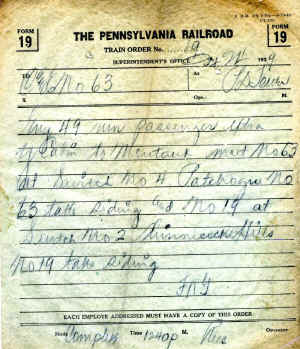 FORM
19
THE PENNSYLVANIA RAILROAD
FORM
19
TRAIN ORDER No. 19
SUPERINTENDENT'S OFFICE
19
TO
C&E No 63
At
X
Opr. M.
Eng 49 run Passenger Extra
to Montauk meet No 63
at Switch No 4 Patchogue No
63 take siding and No 19 at
Switch No 2 Shinnecock Hills
No 19 take siding
EACH EMPLOYE ADDRESSED MUST HAVE A COPY OF THIS ORDER.
Made Complete Time 1240 P M. Operator